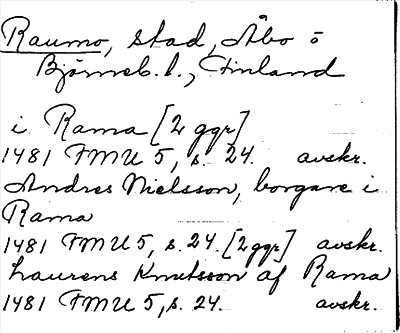 Raumo, stad, Åbo o
Björneb. l., Finland
i Rama [2 ggr]
1481 FMU 5, s. 24. avskr.
Andres Nielsson, borgare i
Rama
1481 FMU 5, s. 24. [2 ggr] avskr.
Laurens Knutsson af Rama
1481 FMU 5, s. 24. avskr.